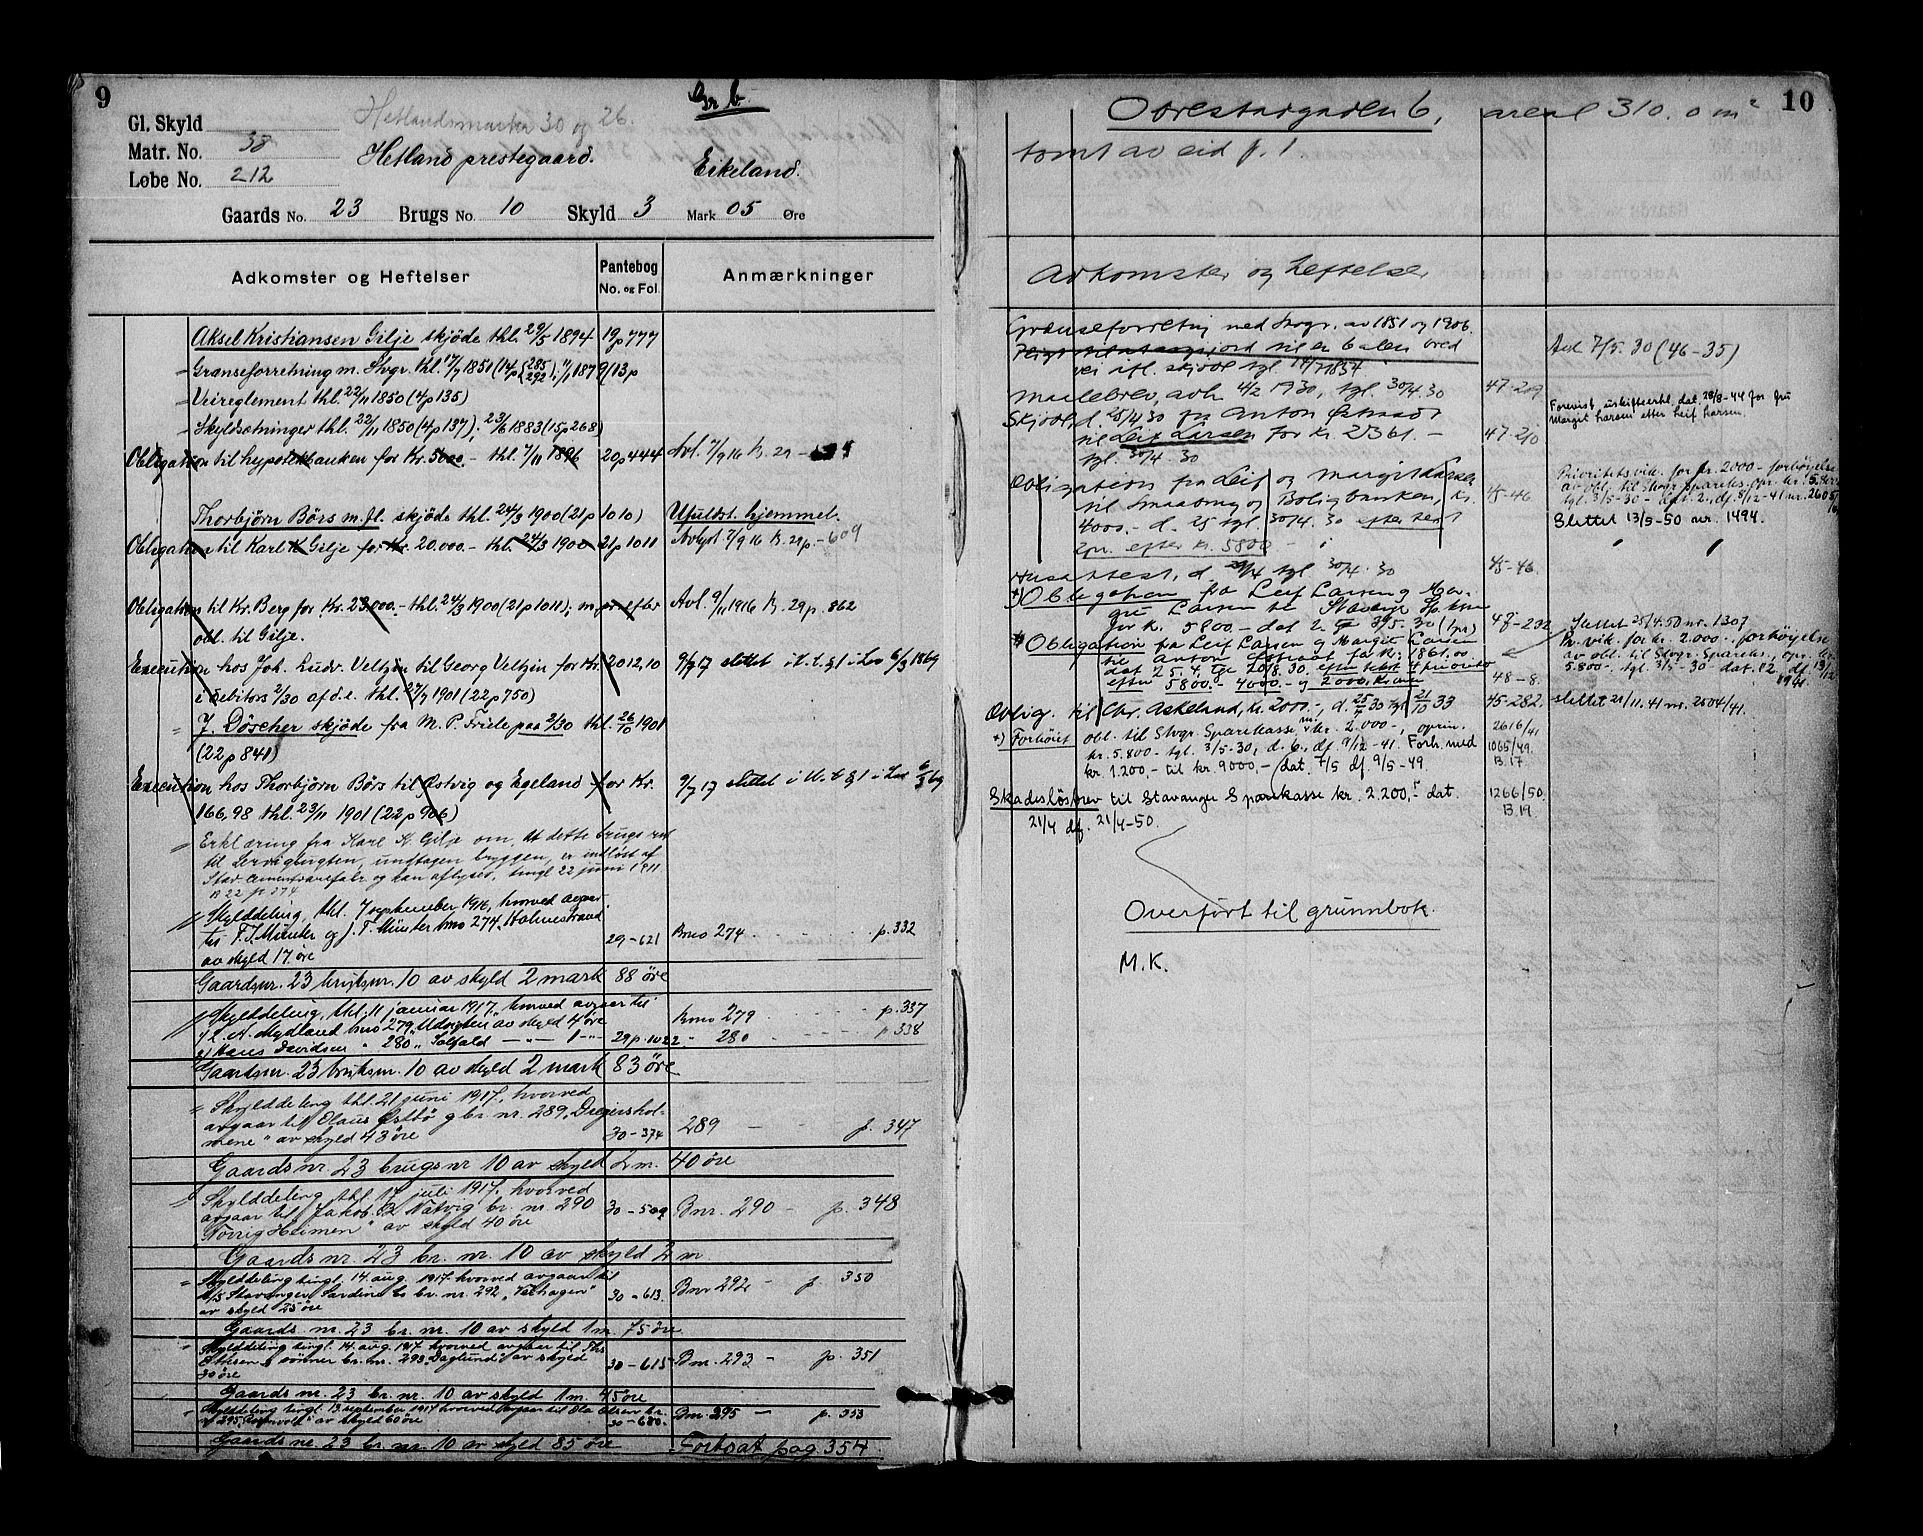 9
Gr b.
Gl. Skyld
Hetlandsmarken 30 og 26.
Matr. No. 38
Hetland prestegaard.
Eikeland.
Løbe No. 212
Gaards No. 23 Brugs No. 10 Skyld 3 Mark 05 Øre
Adkomster og Heftelser
Pantebog No. og Fol.
Anmærkninger
Aksel Kristiansen Gilje skjøde thl. 29/5 1894 19p777
Grænseforretning m. Stvgr. thl. 17/7 1851 (14p{285 292}; 11/11 1879 (13p
Veireglement thl. 22/11 1850 (4p135)
Skyldsætninger thl. 22/11 1850 (4p137); 23/6 1883 (15p268)
Obligation til hypotekbanken for Kr. 5000.- thl. 7/11 1896 20p444 Avl. 7/9 16 B. 29-
Thorbjørn Börs m. fl. skjøde thl. 24/3 1900 (21p1010) Ufuldst. hjemmel.
Obligation til Karl K Gilje for Kr. 20.000.- thl. 24/3 1900 21p1011 Avlyst 7/9 16 B. 29p.-609
Obligation til Kr. Berg for Kr. 23.000.- thl. 24/3 1900 (21p1011); m pr efter Avl. 9/11 1916 B. 29p. 862
obl. til Gilje.
Execution hos Joh. Ludv. Veltzin til Georg Veltzin for Kr. 2012,10 9/7 17 slettet i h. t. § 1 i Lov 6/3 1869
i debitors 2/30 af d. e. thl. 27/7 1901 (22p750)
J. Döscher skjøde fra M. P. Friele paa 2/30 thl. 26/10 1901
(22p841)
Execution hos Thorbjørn Börs til Østvig og Egeland for Kr. 9/7 17 slettet i h. t. § 1 i Lov 6/3 69
166,98 thl. 23/11 1901 (22p906)
Erklæring fra Karl K. Gilje om, at dette brugs ret
til Lervigtngten, undtagen bryggen, er indløst af
Stav. Cementvarefabr og kan aflyses, tingl 22 juni 1911
B 22 p 274
Skylddeling, thl. 7 september 1916, hvorved avgaar
til F. J. Münter og J. F. Münter bno 274 "Holmestrand 29-621 Bno 274 p. 332
av skyld 17 øre
Gaardsnr. 23 bruksnr. 10 av skyld 2 mark 88 øre
Skylddeling, thl. 11 januar 1917, hvorved avgaar til
1/ L. A. Mydland bno 279 "Udsigten av skyld 4 øre Bno 279 p. 337
2/ Hans Davidsen " 280 " Solfald — " — 1 - " - 29p. 1022 - 280 p 338
Gaardsnr. 23 bruksnr. 10 av skyld 2 mark 83 øre
Skylddeling thl. 21 juni 1917, hvorved
avgaar til Olaus Østbö gbr. nr. 289, Dregershol-
mene" av skyld 43 øre 30-374 289 — p. 347
Gaards nr. 23 brugs nr 10 av skyld 2 m. 40 øre
Skylddeling thl. 17 juli 1917, hvorved
avgaar til Jakob B. Natvig br. nr. 290 30-509 Bnr. 290 - p. 348
"Norrig Heimen" av skyld 40 øre
Gaards nr. 23 br. nr. 10 av skyld 2 m
Skylddeling tingl. 14. aug. 1917 hvorved avgaar til
A/S Stavanger Sardin Co br. nr. 292 " 30-613. Bnr 292 - p. 350
av skyld 25 øre
Gaards nr. 23 br. nr. 10 av skyld 1 m. 75 øre
Skylddeling tingl. 14. aug. 1917 hvorved avgaar til
& sønner br. nr. 293 "Daglund" av skyld 30-615 Bnr. 293 - p. 351
30 øre
Gaards nr. 23 br. nr. 10 av skyld 1 m. 45 øre
Skylddeling tingl. 13. september 1917 hvorved avgaar til Ola Olsen br.
nr 295 av skyld 60 øre 30-680. Bnr. 295 — p. 353
Gaards nr. 23 br. nr. 10 av skyld 85 øre Fortsat pag. 354.
10
Oorestadgaden 6, areal 310.0 m²
tomt av eid p. 1.
Adkomster og heftelser
Grænseforretn. med Stvgr. av 1851 og 1906.
til en 6 alen bred Avl 7/5. 30 (46-35)
vei ifl. skjøde tgl. 14/7 1854
Maalebrev, avh. 4/2 1930, tgl. 30/4. 30 47-209
Forevist uskifteerkl. dat. 28/8-44 for fru
Margit Larsen efter Leif Larsen.
Skjøde, d. 25/4 30 fra Anton
til Leif Larsen for kr. 2561.- 47-210
tgl. 30/4. 30
Obligation fra Leif og Margit Larsen
til Smaabruk og Boligbanken, kr. 45-46
4000.- d. 25 tgl. 30/4. 30 efter test
2pr. efter kr. 5800 -
Prioritetsvik. for kr. 2000.- forhøyelse
av obl. til Stvgr. Sparekr. opr. kr. 5.800
tgl. 3/5-30 - dat. 2., df. 8/12-41 nr. 2605/41
Slettet 13/5-50 nr. 1494.
Husattest, d. 29/4 tgl 30/4. 30 45-46.
*) Obligation fra Leif Larsen og Mar-
git Larsen til Stavanger Sp. kasse
for kr. 5800.- dat 2. tgl 3/5. 30 (1pr) 48-232
Slettet 25/4.50 nr. 1307
Obligation fra Leif Larsen og Margit Larsen
til Anton for kr. 1861.00
dat 25. 4. tgl 20/8. 30. efter test 4 prioritet
efter 5800.- 4000.- og 2000. kroner 48-8.
Pr. vik. for kr. 2.000.- forhøyelse
av obl. til Stvgr. Sparekr., opr. kr.
5.800.- tgl. 3/5-30 - dat. 12. df. 13/12
1941
Oblig. til Chr. Askeland, kr. 2000.-, d. 25/7 30 tgl 21/10 33 45-282. slettet 21/11. 41 nr. 2504/41.
*) Forhøiet obl. til Stvgr. Sparekasse m. kr. 2.000.-, oprin. 2616/41
kr. 5.800.- tgl. 3/5-30, d. 6., df. 9/12-41. Forh. med 1065/49.
kr. 1.200,- til kr. 9000,- (dat. 7/5 df. 9/5-49. B. 17.
Skadesløsbrev til Stavanger Sparekasse kr. 2.200,- dat. 1266/50.
21/4 df. 21/4-50. B. 19.
Overført til grunnbok.
M.K.